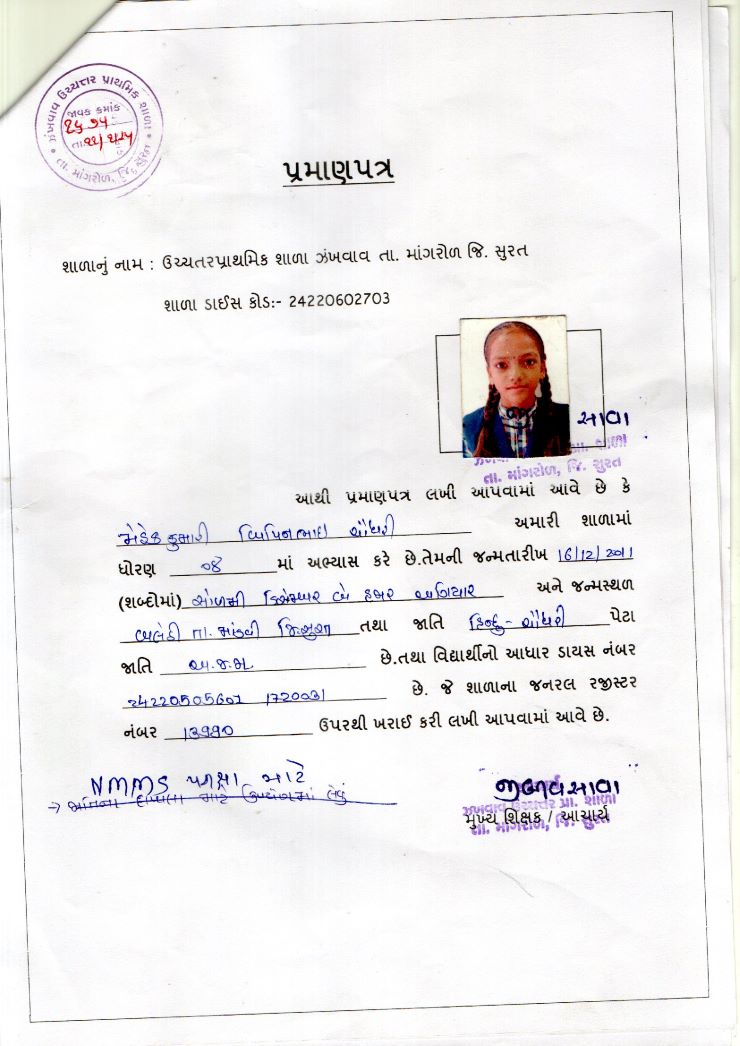 ઝંખવાવ ઉચ્ચત્તર પ્રાથમિક શાળા
જાવક ક્રમાંક
તા.
તા. માંગરોળ, જિ. સુરત
પ્રમાણપત્ર
શાળાનું નામ : ઉચ્ચતરપ્રાથમિક શાળા ઝંખવાવ તા. માંગરોળ જિ. સુરત
શાળા ડાઈસ કોડ:- 24220602703
તા. માંગરોળ, જિ. સુરત
આથી પ્રમાણપત્ર લખી આપવામાં આવે છે કે
કુમારી વિપિનભાઇ ચૌધરી અમારી શાળામાં
ધોરણ ૦૪ માં અભ્યાસ કરે છે.તેમની જન્મતારીખ 16/12/2011
(શબ્દોમાં) સોળમી ડિસેમ્બર બે હજાર અગિયાર અને જન્મસ્થળ
તા. માંડવી જિ.સુરત તથા જાતિ હિન્દુ - ચૌધરી પેટા
જાતિ અ.જ.જા છે.તથા વિદ્યાર્થીનો આધાર ડાયસ નંબર
છે. જે શાળાના જનરલ રજીસ્ટર
નંબર ઉપરથી ખરાઈ કરી લખી આપવામાં આવે છે.
NMMS પરીક્ષા માટે
ઝંખવાવ ઉચ્ચત્તર પ્રા. શાળા
મુખ્ય શિક્ષક / આચાર્ય
તા. માંગરોળ, જિ. સુરત